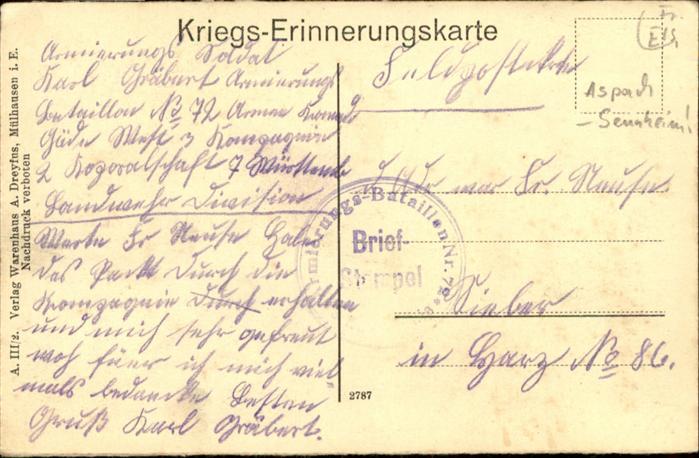 Kriegs-Erinnerungskarte
Armierungs Soldat
Karl Gräbert Armierungs
Bataillon No 72 Armee
Gäde West 3 Kompagnie
2 Kogoralschaft 7 Württemb
Landwehr Division
Werte Fr Neuse Habe
das Packt durch die
Kompagnie durch erhalten
und mich sehr gefreut
woh füer ich mich viel-
mals bedancke Besten
Gruß Karl Gräbert.
A. III/2. Verlag Warenhaus A. Dreyfus, Mülhausen i. E.
Nachdruck verboten
2787
Feldpostkarte
Fr Neuse
Sieber
in Harz No 86.
Armierungs-Bataillon Nr. 72
Brief-
Stempel
Fr.
Els.
Aspach
-Sennheim!